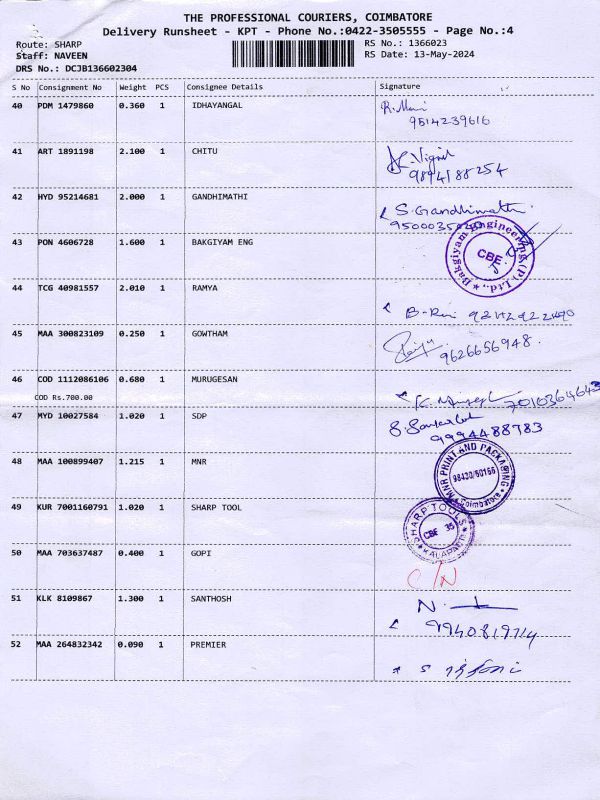 THE PROFESSIONAL COURIERS, COIMBATORE
Delivery Runsheet - KPT - Phone No.:0422-3505555 - Page No.:4
Route: SHARP RS No.: 1366023
Staff: NAVEEN RS Date: 13-May-2024
DRS No.: DCJB136602304
S No Consignment No Weight PCS Consignee Details Signature
40 PDM 1479860 0.360 1 IDHAYANGAL R. Mani
9514239616
41 ART 1891198 2.100 1 CHITU
9894188254
42 HYD 95214681 2.000 1 GANDHIMATHI S. Gandhimathi
43 PON 4606728 1.600 1 BAKGIYAM ENG Bakgiyam Engineering (P) Ltd., CBE
44 TCG 40981557 2.010 1 RAMYA
45 MAA 300823109 0.250 1 GOWTHAM
9626656948
46 COD 1112086106 0.680 1 MURUGESAN
COD Rs.700.00
47 MYD 10027584 1.020 1 SDP
9994488783
48 MAA 100899407 1.215 1 MNR MNR PRINT AND PACKAGING 98430/50166 Coimbatore
49 KUR 7001160791 1.020 1 SHARP TOOL SHARP TOOLS CBE 35 KALAPATTI
50 MAA 703637487 0.400 1 GOPI C/N
51 KLK 8109867 1.300 1 SANTHOSH N.
52 MAA 264832342 0.090 1 PREMIER